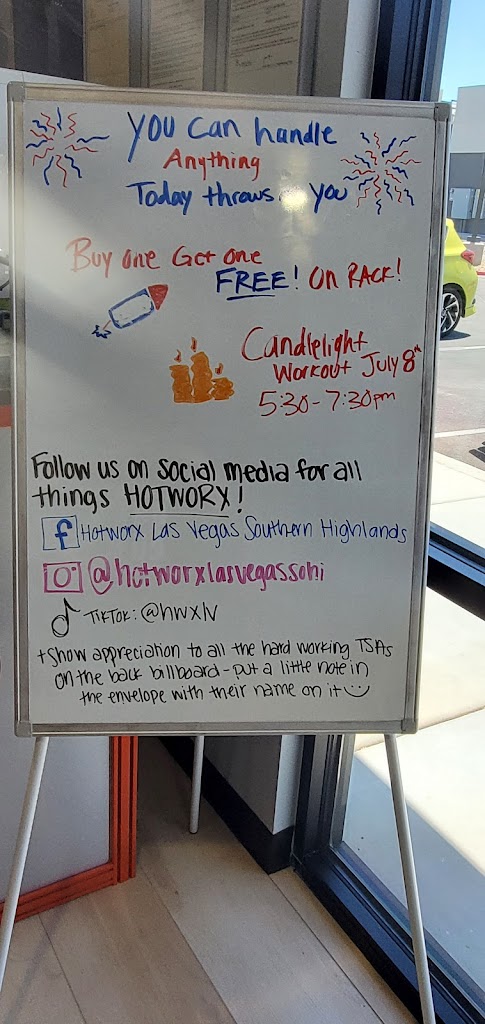 You can handle
Anything
Today throws you
Buy one Get one
FREE! ON RACK!
Candlelight
Workout July 8th
5:30-7:30pm
Follow us on social media for all
things HOTWORX!
f Hotworx Las Vegas Southern Highlands
@hotworxlasvegassohi
TikTok: @hwxlv
+Show appreciation to all the hard working TSAs
on the back billboard - put a little note in
the envelope with their name on it